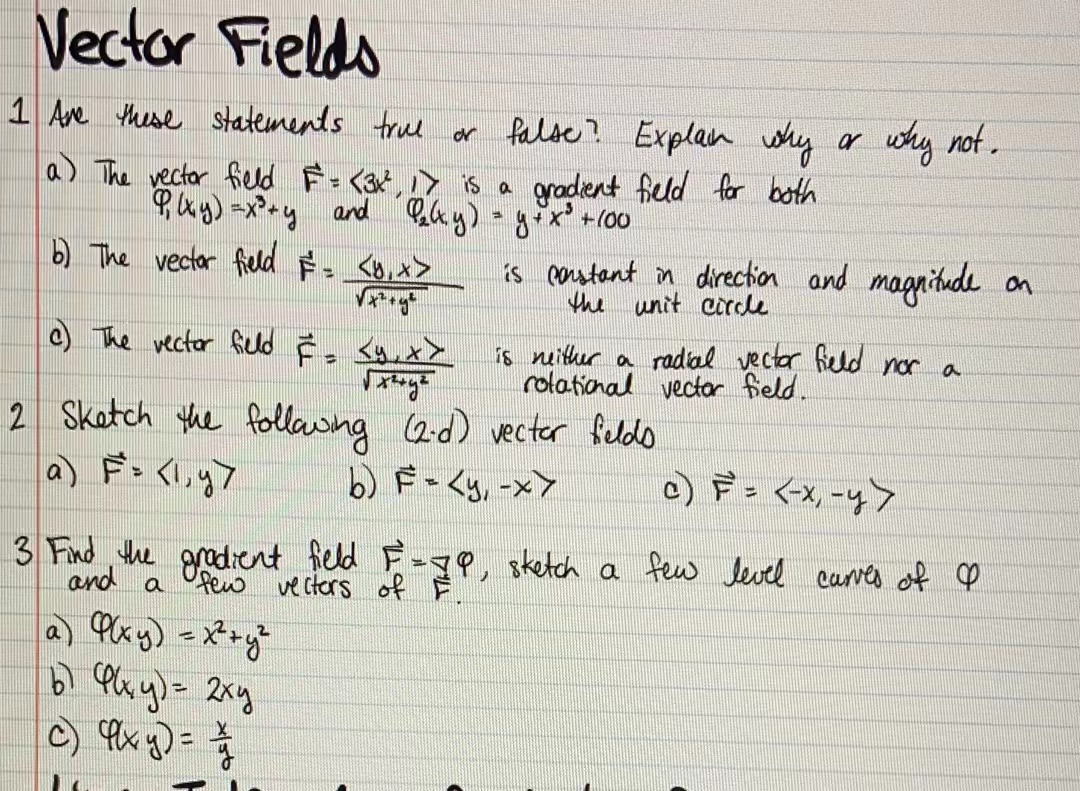 Vector Fields
1 Are these statements true or false? Explain why or why not.
a) The vector field F⃗ = <3x², 1> is a gradient field for both
φ₁(x,y) = x³+y and φ₂(x,y) = y + x³ + 100
b) The vector field F⃗ = <y,x> / √x²+y² is constant in direction and magnitude on
the unit circle
c) The vector field F⃗ = <y,x> / √x²+y² is neither a radial vector field nor a
rotational vector field.
2 Sketch the following (2-d) vector fields
a) F⃗ = <1, y> b) F⃗ = <y, -x> c) F⃗ = <-x, -y>
3 Find the gradient field F⃗ = ∇φ, sketch a few level curves of φ
and a few vectors of F⃗.
a) φ(x y) = x²+y²
b) φ(x,y) = 2xy
c) φ(x y) = x/y